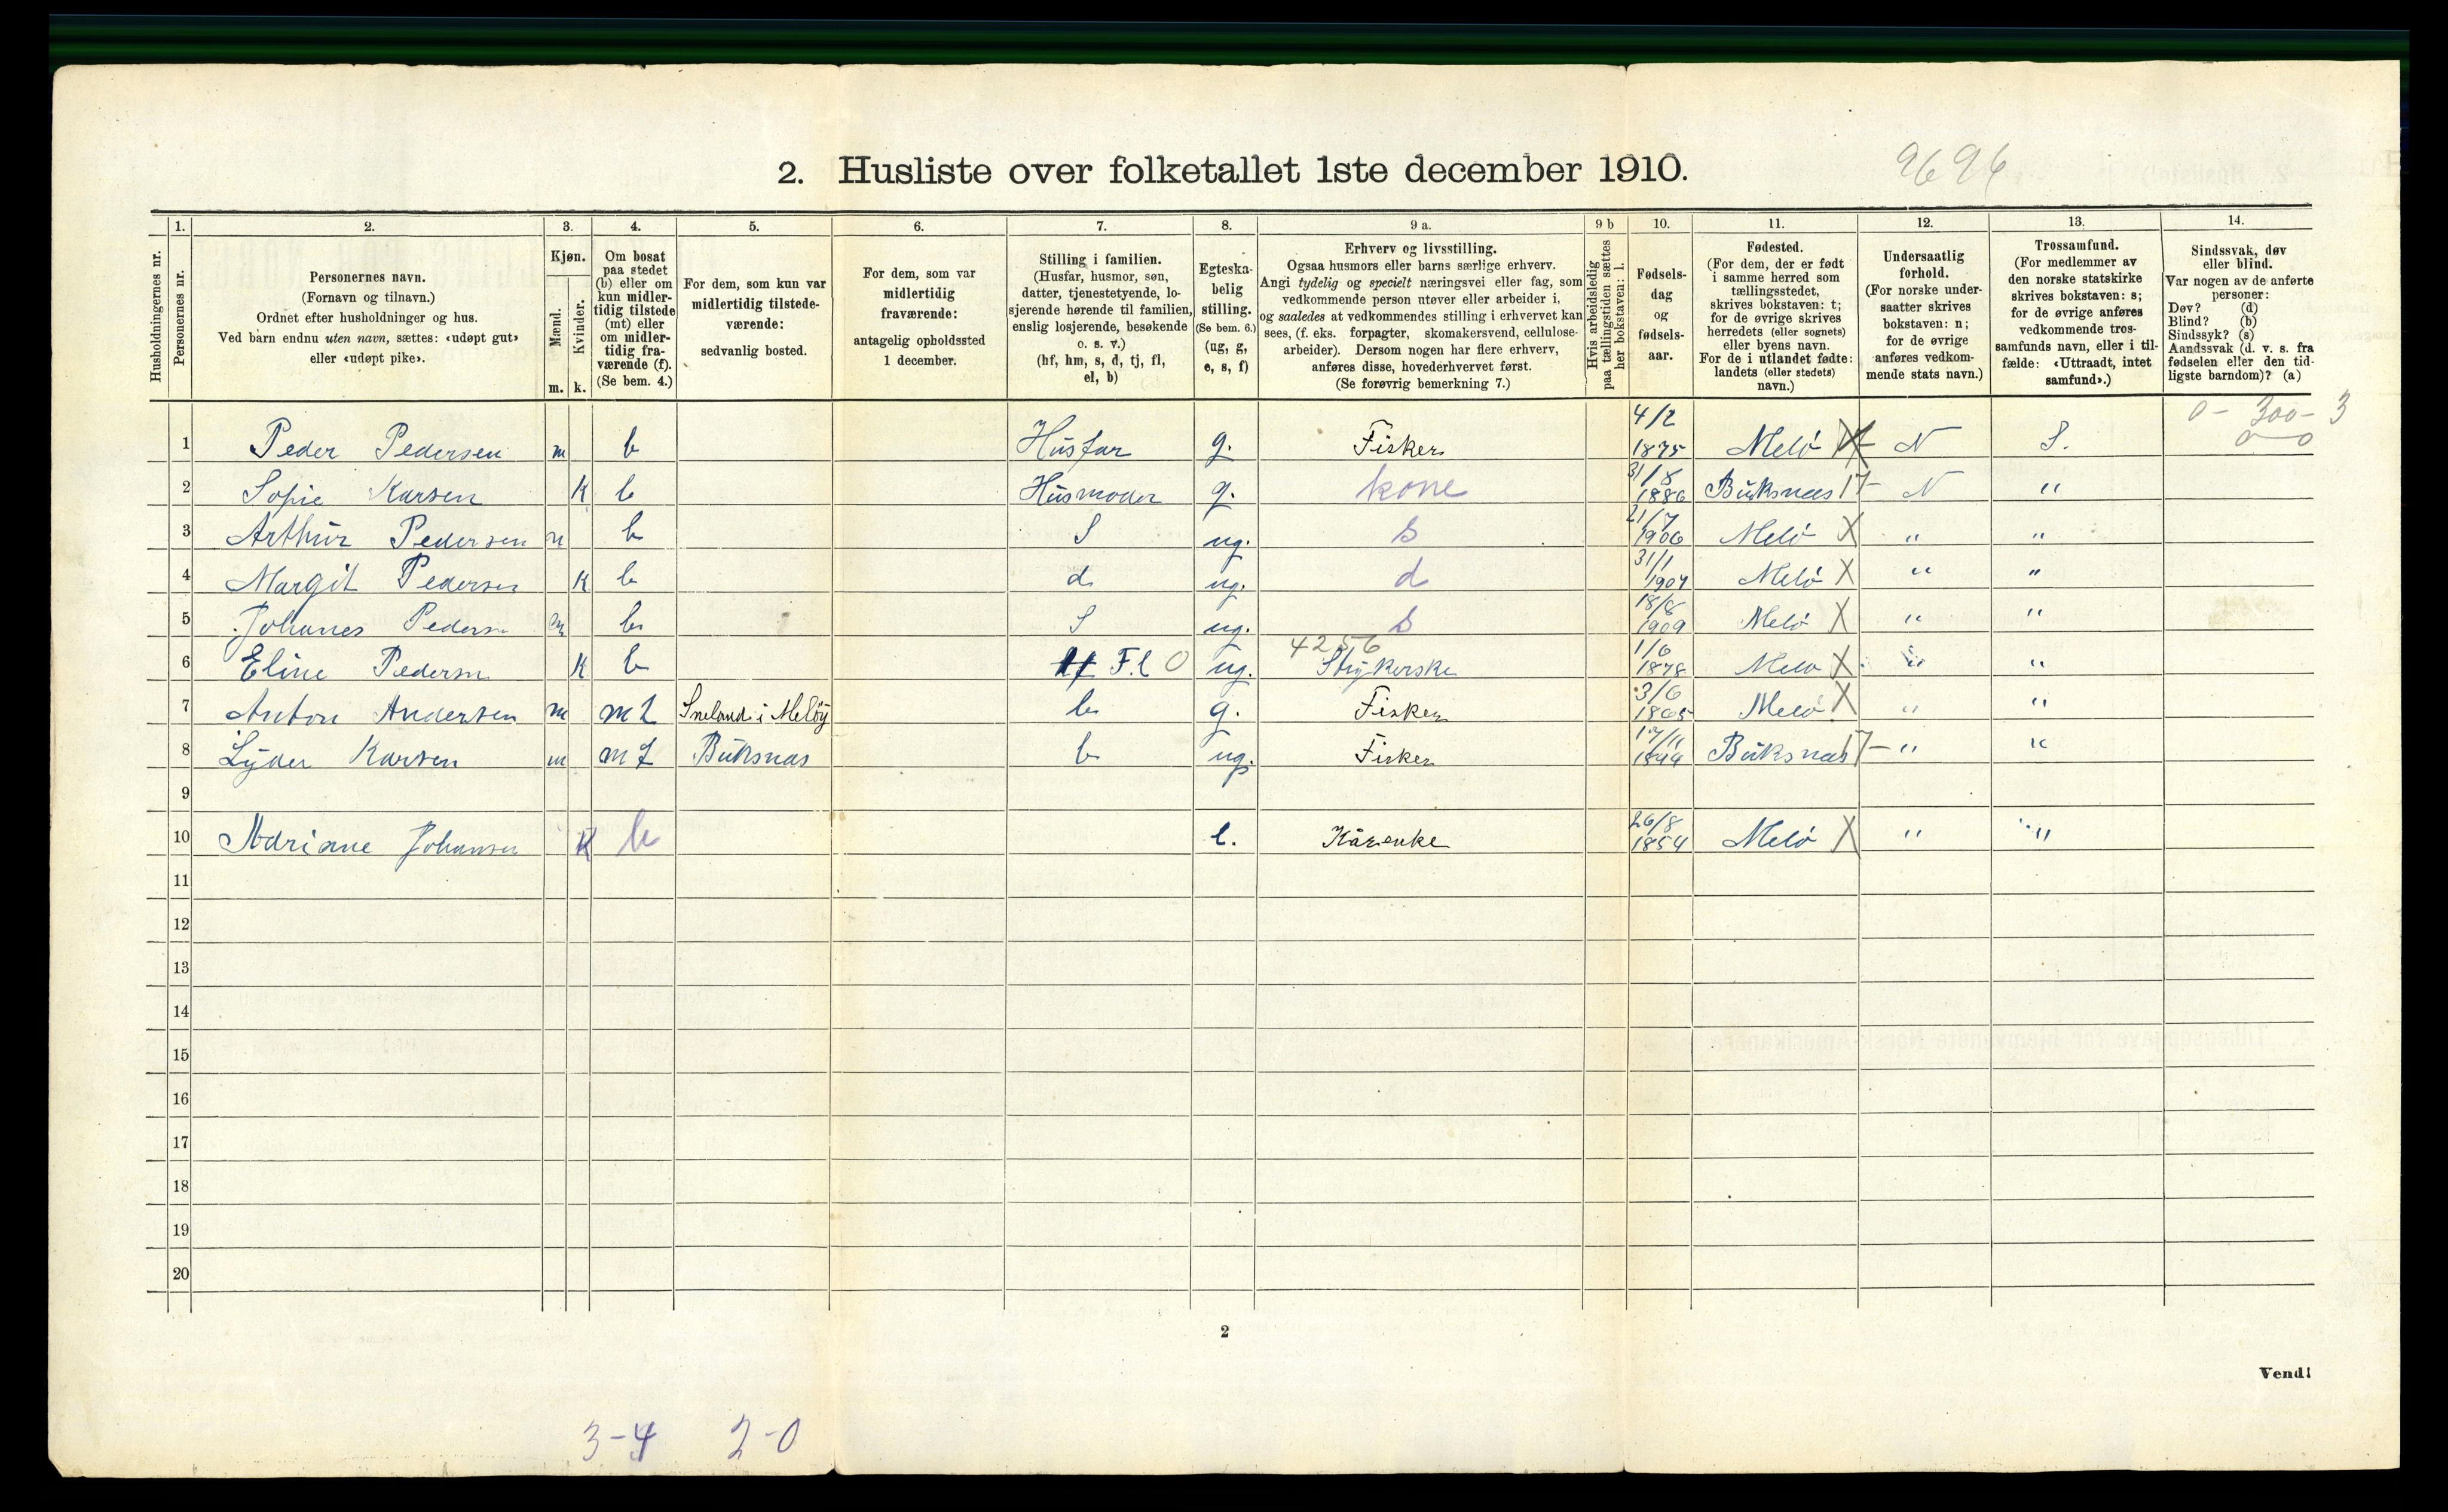 2. Husliste over folketallet 1ste december 1910.
9696
1. 2. 3. 4. 5. 6. 7. 8. 9 a. 9 b 10. 11. 12. 13. 14.
Husholdningernes nr.
Personernes nr.
Personernes navn.
(Fornavn og tilnavn.)
Ordnet efter husholdninger og hus.
Ved barn endnu uten navn, sættes: «udøpt gut»
eller «udøpt pike».
Kjøn.
Mænd.
Kvinder.
m. k.
Om bosat
paa stedet
(b) eller om
kun midler-
tidig tilstede
(mt) eller
om midler-
tidig fra-
værende (f).
(Se bem. 4.)
For dem, som kun var
midlertidig tilstede-
værende:
sedvanlig bosted.
For dem, som var
midlertidig
fraværende:
antagelig opholdssted
1 december.
Stilling i familien.
(Husfar, husmor, søn,
datter, tjenestetyende, lo-
sjerende hørende til familien,
enslig losjerende, besøkende
o. s. v.)
(hf, hm, s, d, tj, fl,
el, b)
Egteska-
belig
stilling.
(Se bem. 6.)
(ug, g,
e, s, f)
Erhverv og livsstilling.
Ogsaa husmors eller barns særlige erhverv.
Angi tydelig og specielt næringsvei eller fag, som
vedkommende person utøver eller arbeider i,
og saaledes at vedkommendes stilling i erhvervet kan
sees, (f. eks. forpagter, skomakersvend, cellulose-
arbeider). Dersom nogen har flere erhverv,
anføres disse, hovederhvervet først.
(Se forøvrig bemerkning 7.)
Hvis arbeidsledig
paa tællingstiden sættes
her bokstaven: l.
Fødsels-
dag
og
fødsels-
aar.
Fødested.
(For dem, der er født
i samme herred som
tællingsstedet,
skrives bokstaven: t;
for de øvrige skrives
herredets (eller sognets)
eller byens navn.
For de i utlandet fødte:
landets (eller stedets)
navn.)
Undersaatlig
forhold.
(For norske under-
saatter skrives
bokstaven: n;
for de øvrige
anføres vedkom-
mende stats navn.)
Trossamfund.
(For medlemmer av
den norske statskirke
skrives bokstaven: s;
for de øvrige anføres
vedkommende tros-
samfunds navn, eller i til-
fælde: «Uttraadt, intet
samfund».)
Sindssvak, døv
eller blind.
Var nogen av de anførte
personer:
Døv? (d)
Blind? (b)
Sindssyk? (s)
Aandssvak (d. v. s. fra
fødselen eller den tid-
ligste barndom)? (a)
0 - 300 - 3
0 - 0
1 Peder Pedersen m b Husfar g. Fisker 4/2 1875 Melö X N S.
2 Sofie Karsen K b Husmoder g. kone 31/8 1886 Buksnas 17- N "
3 Arthur Pedersen m b S ug. s 21/7 1906 Melö X " "
4 Margit Pedersen K b d ug. d 31/1 1907 Melö X " "
5 Johanes Pedersn m b S ug. s 18/8 1909 Melö X " "
6 Eline Pedersn K b F.l 0 ug. 4256 Strykerske 1/6 1878 Melö X " "
7 Anton Andersen m mt Sneland i Meløy b g. Fisker 3/6 1865 Melö X " "
8 Lyder Karsen m mt Buksnas b ug. Fisker 17/11 1894 Buksnas 17- " "
9
10 Adriane Johansen K b e. Kårenke 26/8 1854 Melö X " "
11
12
13
14
15
16
17
18
19
20
2
Vend!
3-4 2-0